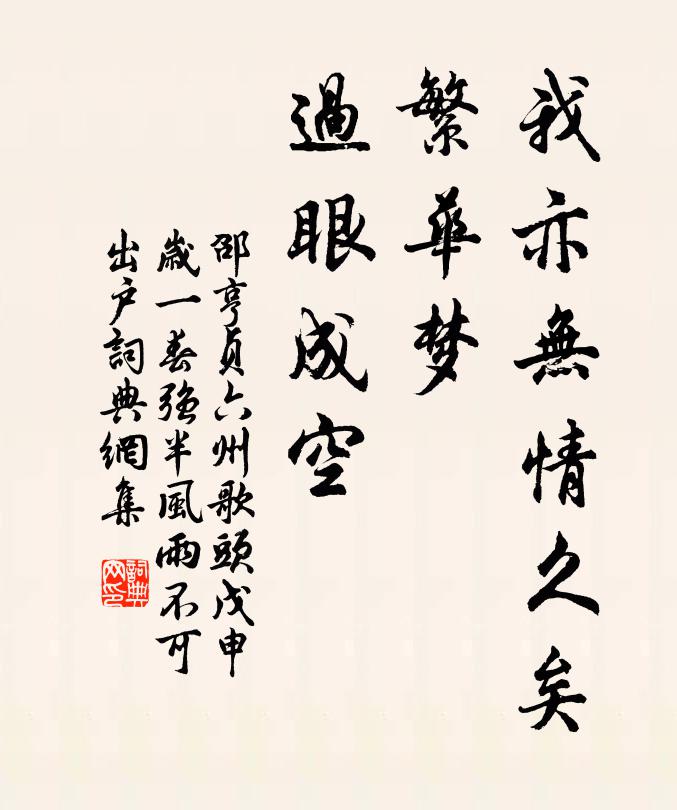 我亦無情久矣
繁華梦
過眼成空
邵亨貞六州歌頭戊申
歲一春強半風雨不可
出户詞典網集
詞典
网印